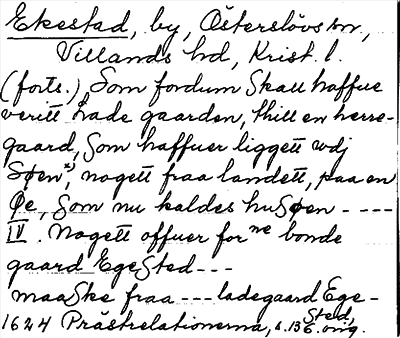 Ekestad, by, Österslövs sn,
Villands hd, Krist. l.
(forts.) Som fordum Skall haffue
veritt Lade gaarden, thill en herre-
gaard, Som haffuer liggett udj
Søen, nogett fraa landett, paa en
Øe, Som nu kaldes huSøen - - - -
IV. Nogett offuer for ne bonde
gaard EgeSted - - -
maaSke fraa - - - ladegaard Ege-
Sted,
1624 Prästrelationerna, s. 136. orig.